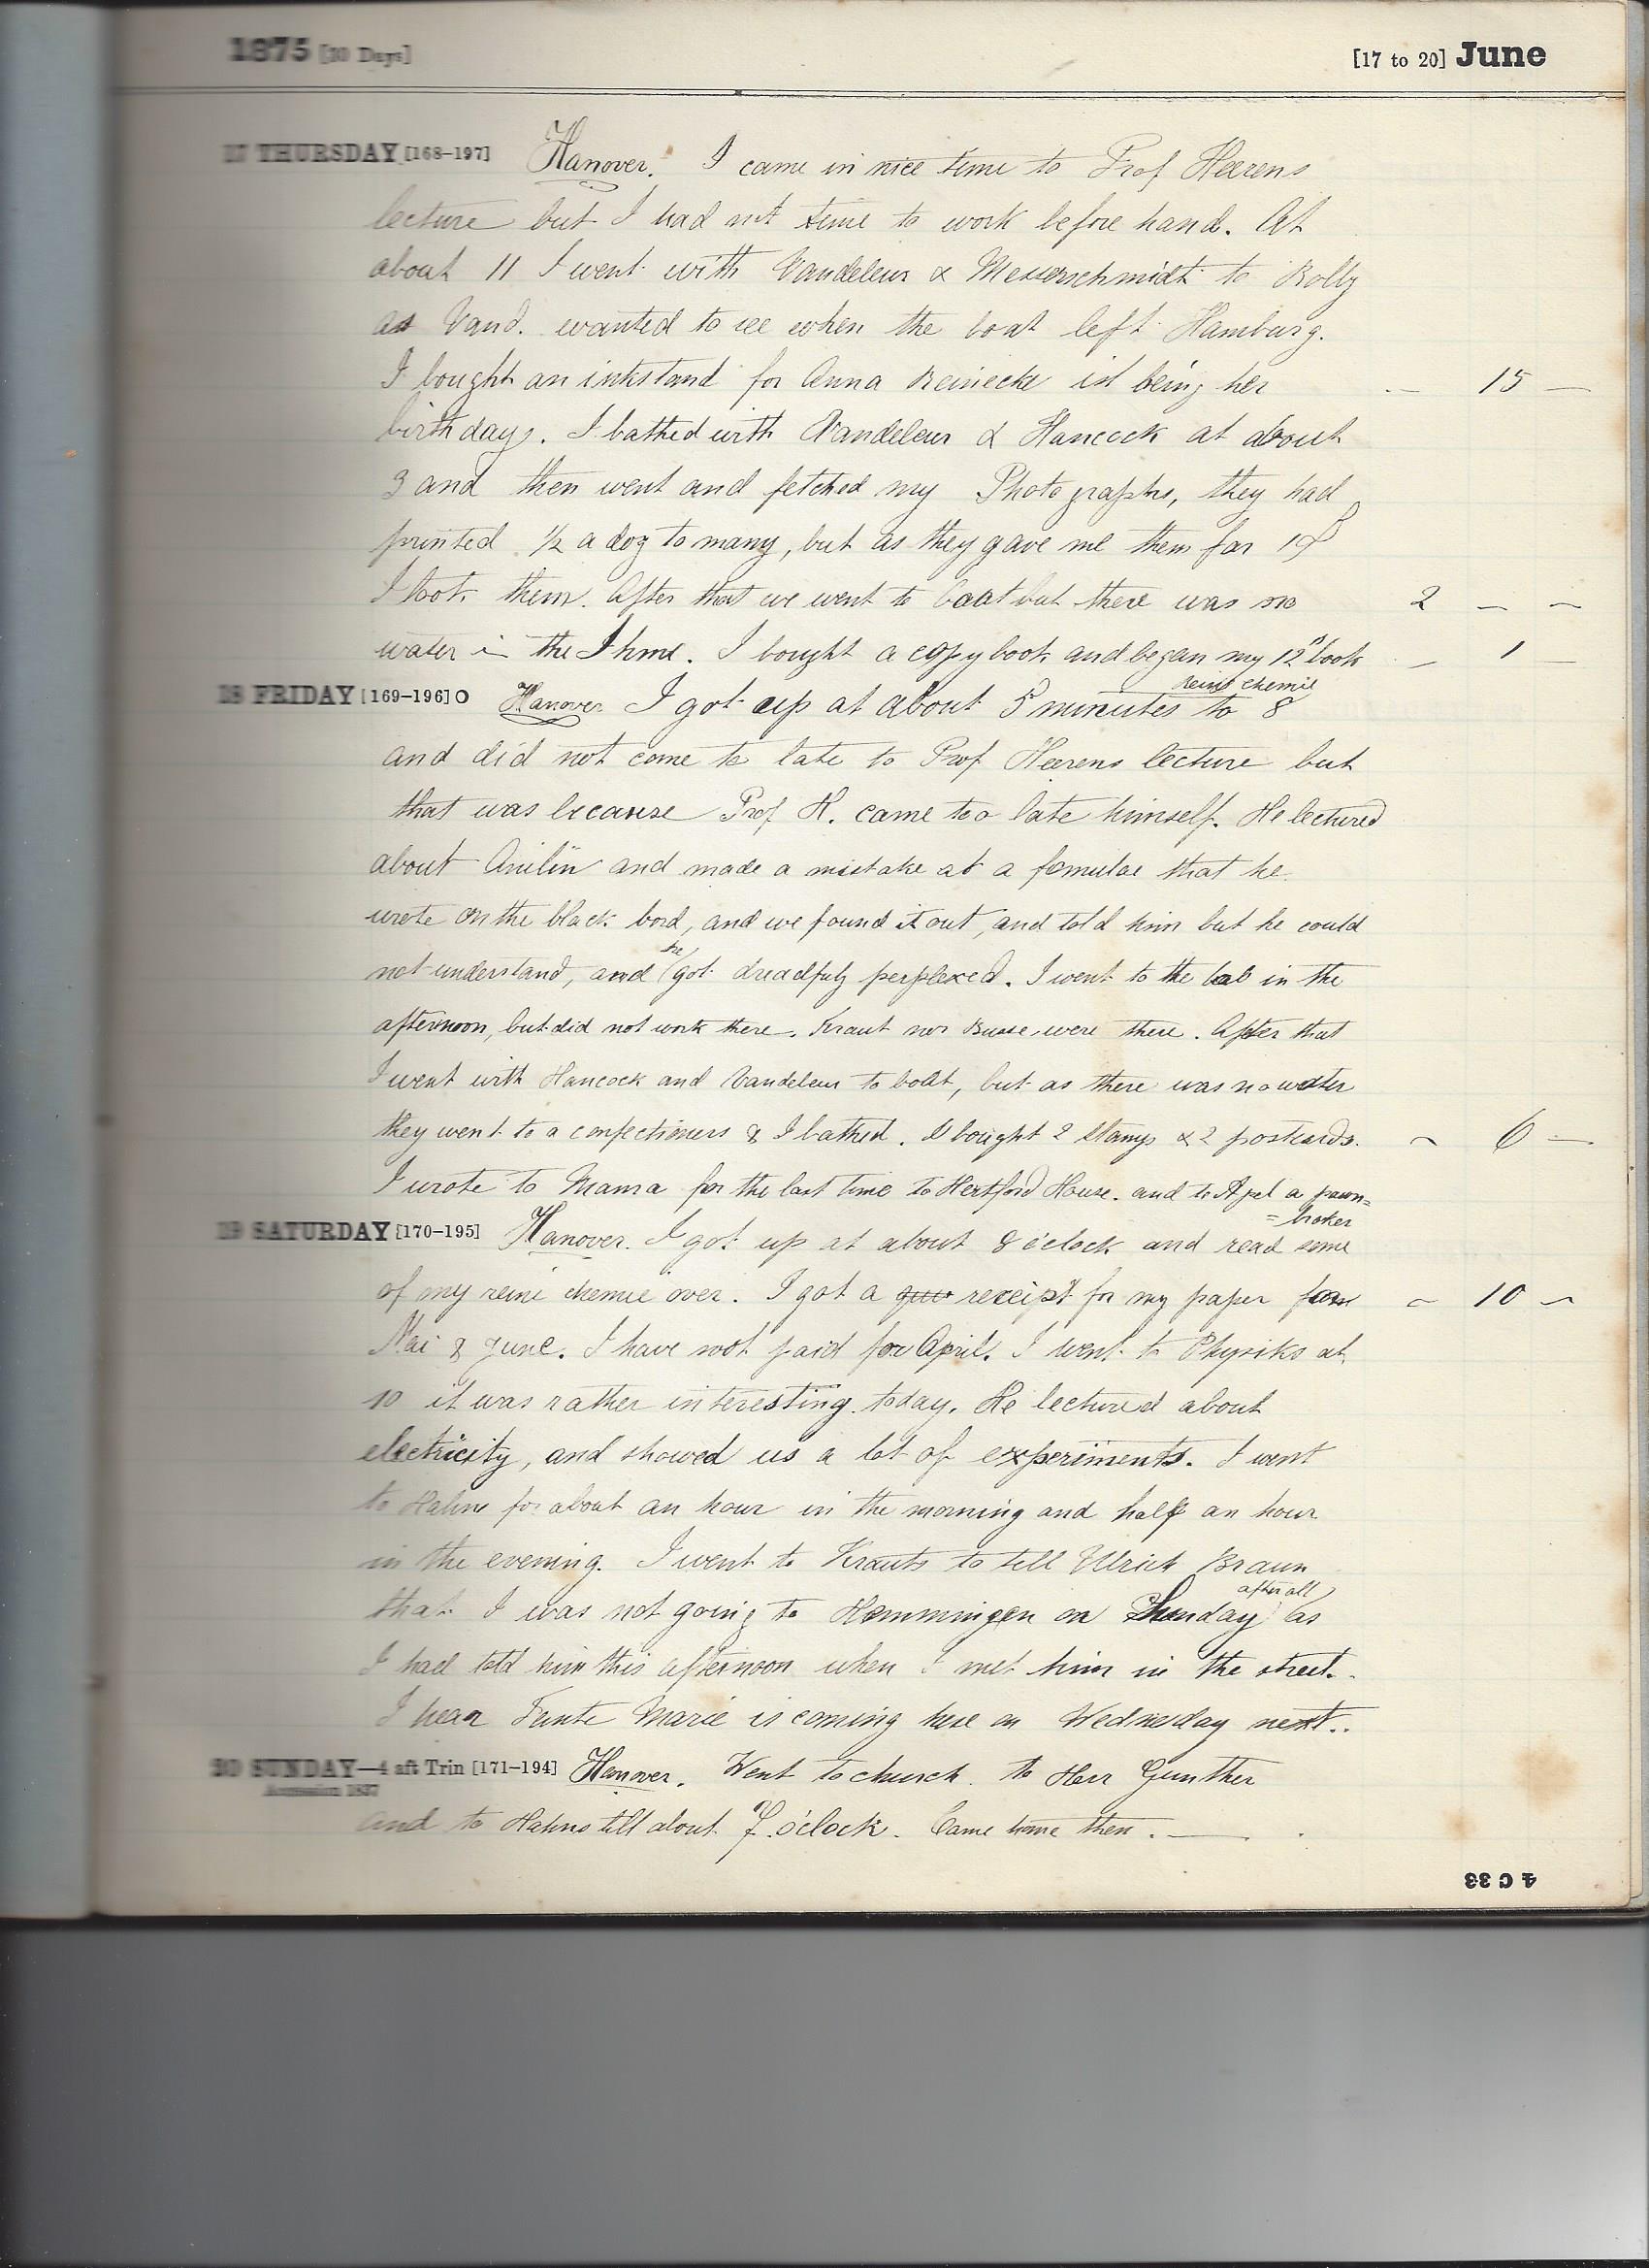 1875 [30 Days] [17 to 20] June
17 THURSDAY [168-197] Hanover. I came in nice time to Prof Heerens
lecture but I had not time to work before hand. At
about 11 I went with Vandeleur & Messerschmidt to Bolly
as Vand. wanted to see when the boat left Hamburg.
I bought an inkstand for Anna Reinecke ist being her — 15 —
birthdays. I bathed with Vandeleur & Hancock at about
3 and then went and fetched my Photographs, they had
printed ½ a doz to many, but as they gave me them for
I took them. After that we went to boat but there was no 2 — —
water in the Ihme. I bought a copybook and began my 12" book — 1 —
reine chemie
18 FRIDAY [169-196] O Hanover I got up at about 5 minutes to 8
and did not come to late to Prof Heerens lecture but
that was because Prof H. came too late himself. He lectured
about Anilin and made a mistake at a fomulae that he
wrote on the black bord, and we found it out, and told him but he could
not understand, and he got dreadfuly perplexed. I went to the lab in the
afternoon, but did not work there. Kraut nor Busse were there. After that
I went with Hancock and Vandeleur to boat, but as there was no water
they went to a confectioners & I bathed. I bought 2 stamps & 2 postcards. — 6 —
I wrote to Mama for the last time to Hertford House. and to Apel a pawn=
=broker
19 SATURDAY [170-195] Hanover. I got up at about 8 o'clock and read some
of my reine chemie over. I got a receipt for my paper for — 10 —
Mai & June. I have not paid for April. I went to Physiks at
10 it was rather interesting today. He lectured about
electricity, and showed us a lot of experiments. I went
to Hahns for about an hour in the morning and half an hour
in the evening. I went to Krauts to tell Ulrich Braun
that I was not going to Hemmingen on Sunday after all as
I had told him this afternoon when I met him in the street.
I hear Tante Marie is coming here on Wednesday next..
20 SUNDAY—4 aft Trin [171-194] Hanover. Went to church. to Herr Gunther
Accession 1837
and to Hahns till about 7 o'clock. Came home then. —
4 C 33